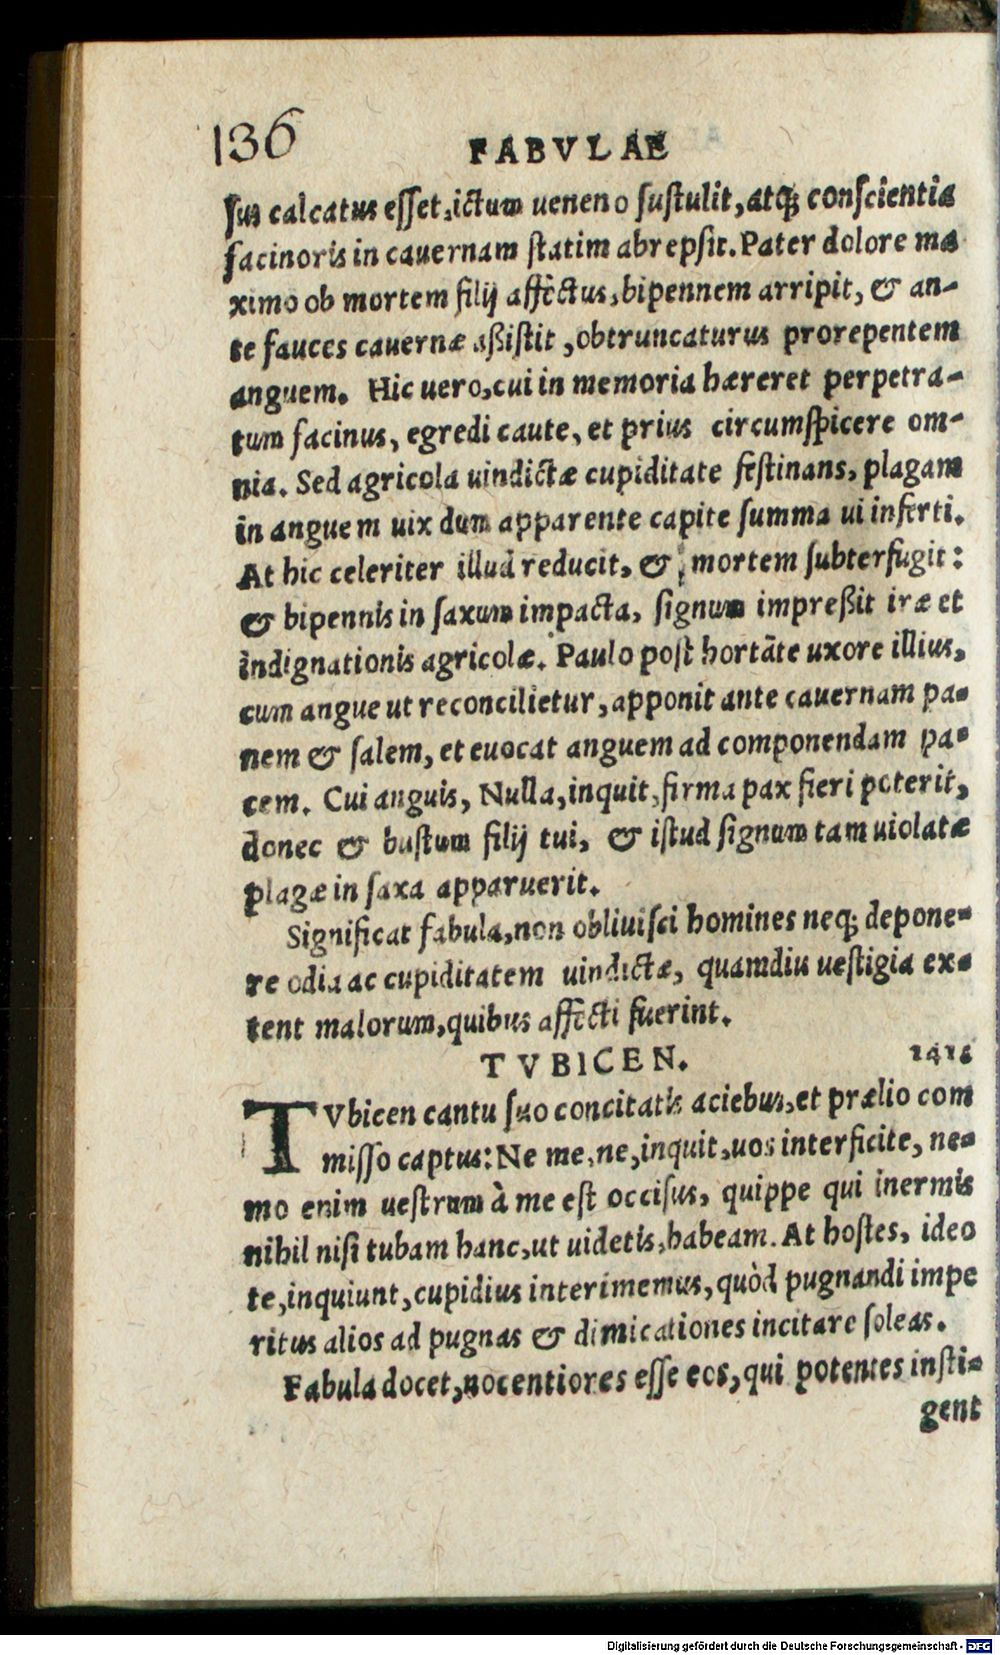 136
FABVLAE
sus calcatus esset, ictum ueneno sustulit, atq; conscientia
facinoris in cauernam statim abrepsit. Pater dolore ma
ximo ob mortem filij affectus, bipennem arripit, & an-
te fauces cauernæ aßistit, obtruncaturus prorepentem
anguem. Hic uero, cui in memoria hæreret perpetra-
tum facinus, egredi caute, et prius circumspicere om-
nia. Sed agricola uindictæ cupiditate festinans, plagam
in anguem uix dum apparente capite summa ui inferti.
At hic celeriter illud reducit, & mortem subterfugit:
& bipennis in saxum impacta, signum impreßit iræ et
indignationis agricolæ. Paulo post hortāte uxore illius,
cum angue ut reconcilietur, apponit ante cauernam pa-
nem & salem, et euocat anguem ad componendam pa-
cem. Cui anguis, Nulla, inquit, firma pax fieri poterit,
donec & bustum filij tui, & istud signum tam uiolatæ
plagæ in saxa apparuerit.
Significat fabula, non obliuisci homines neq; depone-
re odia ac cupiditatem uindictæ, quamdiu uestigia ex-
tent malorum, quibus affecti fuerint.
TVBICEN.
TVbicen cantu suo concitatis aciebus, et prælio com
misso captus: Ne me, ne, inquit, uos interficite, ne-
mo enim uestrum à me est occisus, quippe qui inermis
nihil nisi tubam hanc, ut uidetis, habeam. At hostes, ideo
te, inquiunt, cupidius interimemus, quòd pugnandi impe
ritus alios ad pugnas & dimicationes incitare soleas.
Fabula docet, nocentiores esse eos, qui potentes insti-
gent
Digitalisierung gefördert durch die Deutsche Forschungsgemeinschaft - DFG